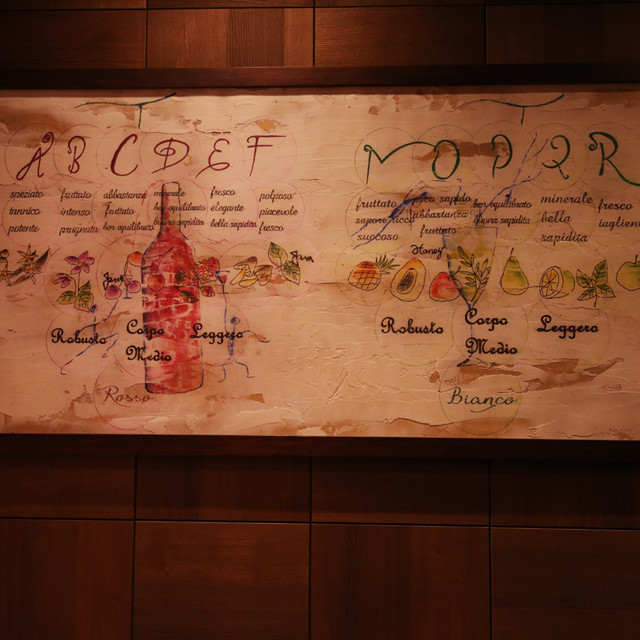 A B C D E F
speziato fruttato abbastanza minerale fresco polposo
tannico intenso fruttato ben equilibrato elegante piacevole
potente ben equilibrato buona sapidita bella sapidita fresco
Jam
Jam
Robusto Corpo Medio Leggero
Rosso
M O P Q R
fruttato poco sapido ben equilibrato minerale fresco
abbastanza buona sapidita bella
succoso fruttato sapidita
Honey
Robusto Corpo Medio Leggero
Bianco